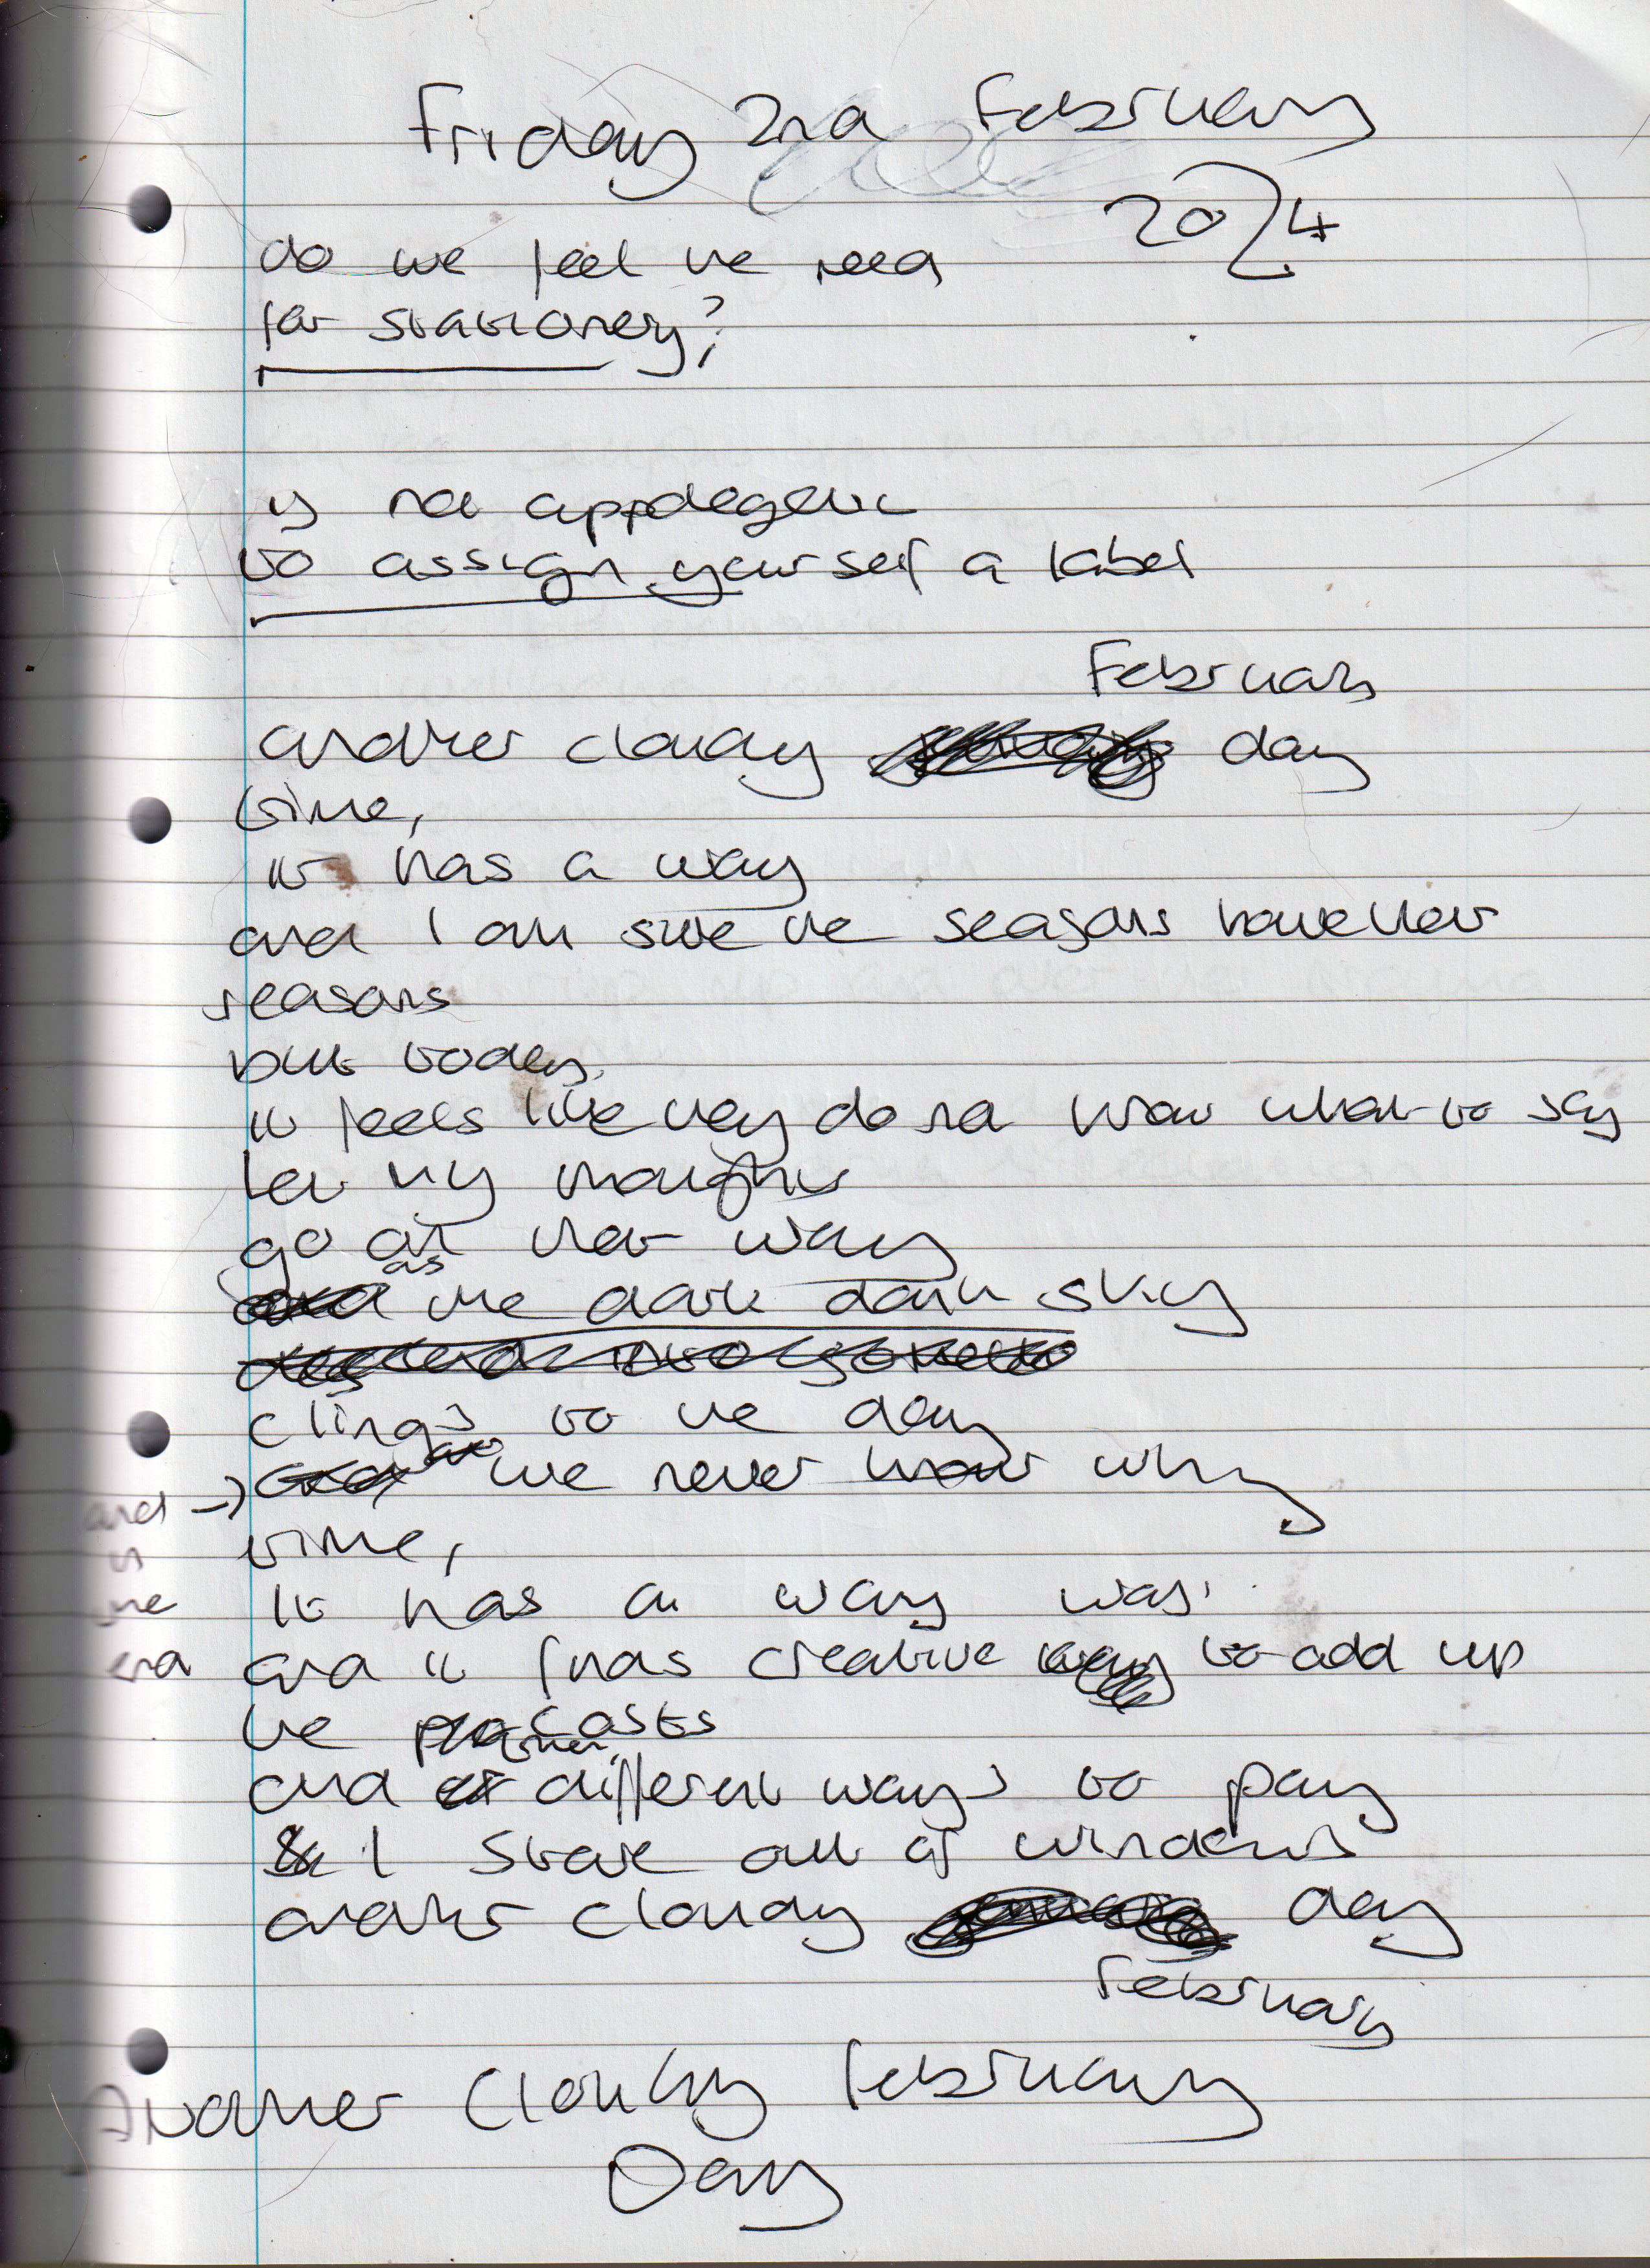 Friday 2nd February
2024
do we feel the need
for stationery?
is not
to assign yourself a label
February
another cloudy day
time,
it has a way
and I am sure the seasons have their
reasons
but today,
it feels like they do not know what to say
let my thoughts
go on their way
as
the dark dark sky
clings to the day
and → we never know why
time,
it has a way
and it finds creative to add up
the costs
and different ways to pay
& I stare out of windows
another cloudy day
February
Another Cloudy February
Day